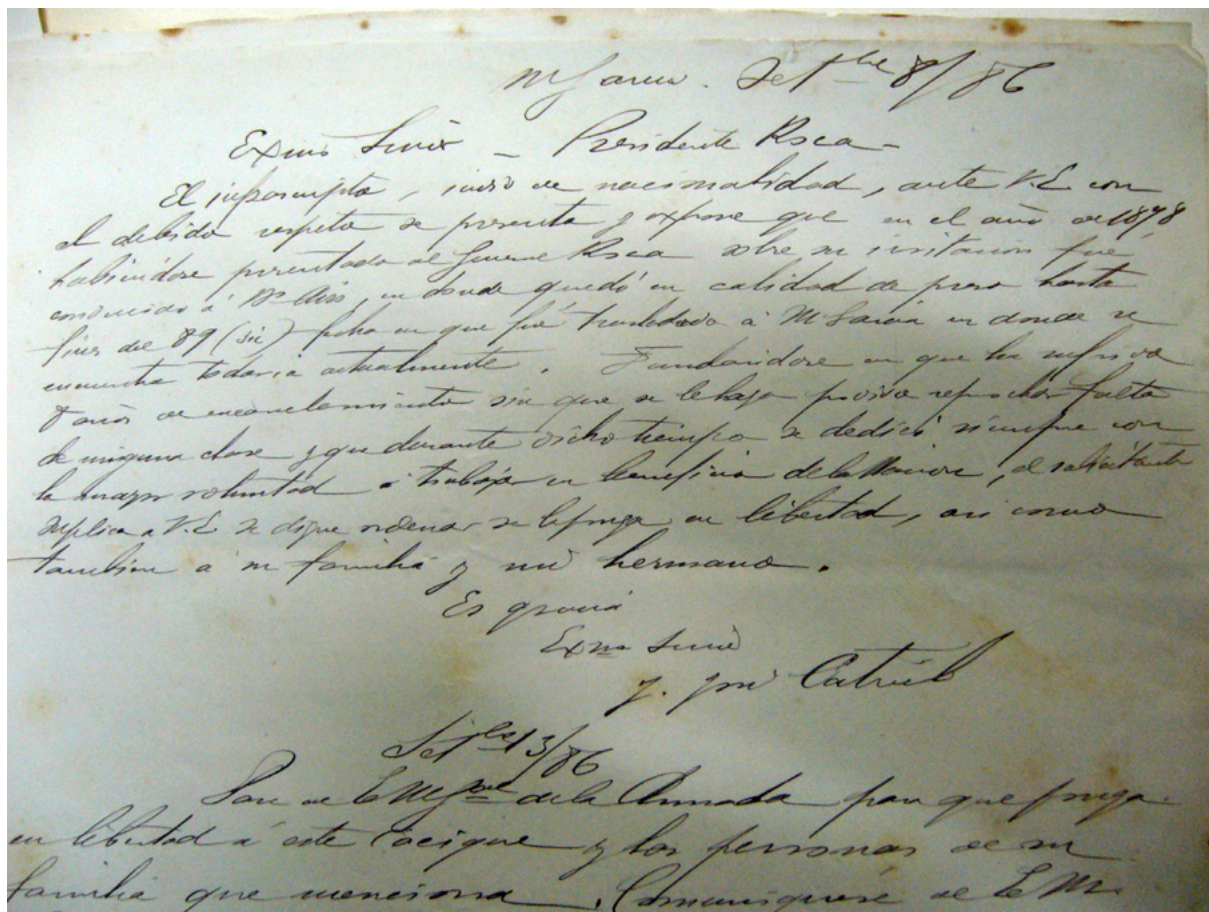 M Garcia. Set^bre 8/86
Exmo Señor – Presidente Roca –
El infrascripto, indio de nacionalidad, ante V.E. con
el debido respeto se presenta y expone que en el año de 1878
habiéndose presentado al General Roca sobre su invitacion fué
conducido á Bs Aires, en donde quedó en calidad de preso hasta
fines del 89 (sic) fecha en que fué trasladado á M Garcia en donde se
encuentra todavia actualmente. Fundandose en que ha sufrido
8 años de encarcelamiento sin que se le haya podido reprochar falta
de ninguna clase y que durante dicho tiempo se dedicó siempre con
la mayor voluntad á trabajar en beneficio de la Nacion, el solicitante
suplica a V.E. se digne ordenar se le ponga en libertad, asi como
tambien á su familia y su hermano.
Es gracia
Exmo Señor
J. José Catriel
Set^bre 13/86
Pase al E M Gral de la Armada para que ponga
en libertad á este Cacique y las personas de su
familia que menciona. Comuniquese al E M